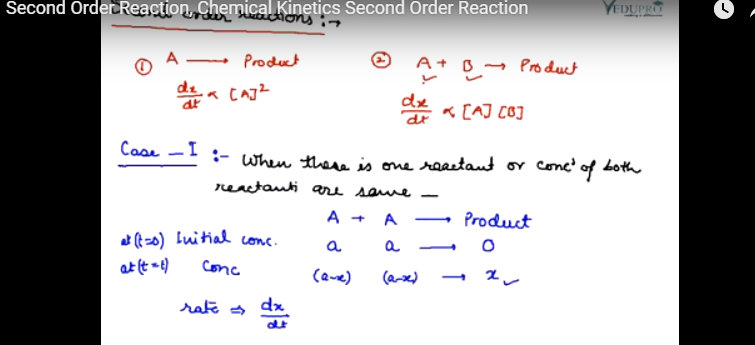 Second Order Reaction, Chemical Kinetics Second Order Reaction
VEDUPRO
order reactions :→
① A → Product
② A + B → Product
dx/dt ∝ [A]²
dx/dt ∝ [A] [B]
Case - I :- When there is one reactant or concⁿ of both
reactants are same -
A + A → Product
at (t=0) Initial conc. a a → 0
at (t=t) Conc (a-x) (a-x) → x
rate ⇒ dx/dt